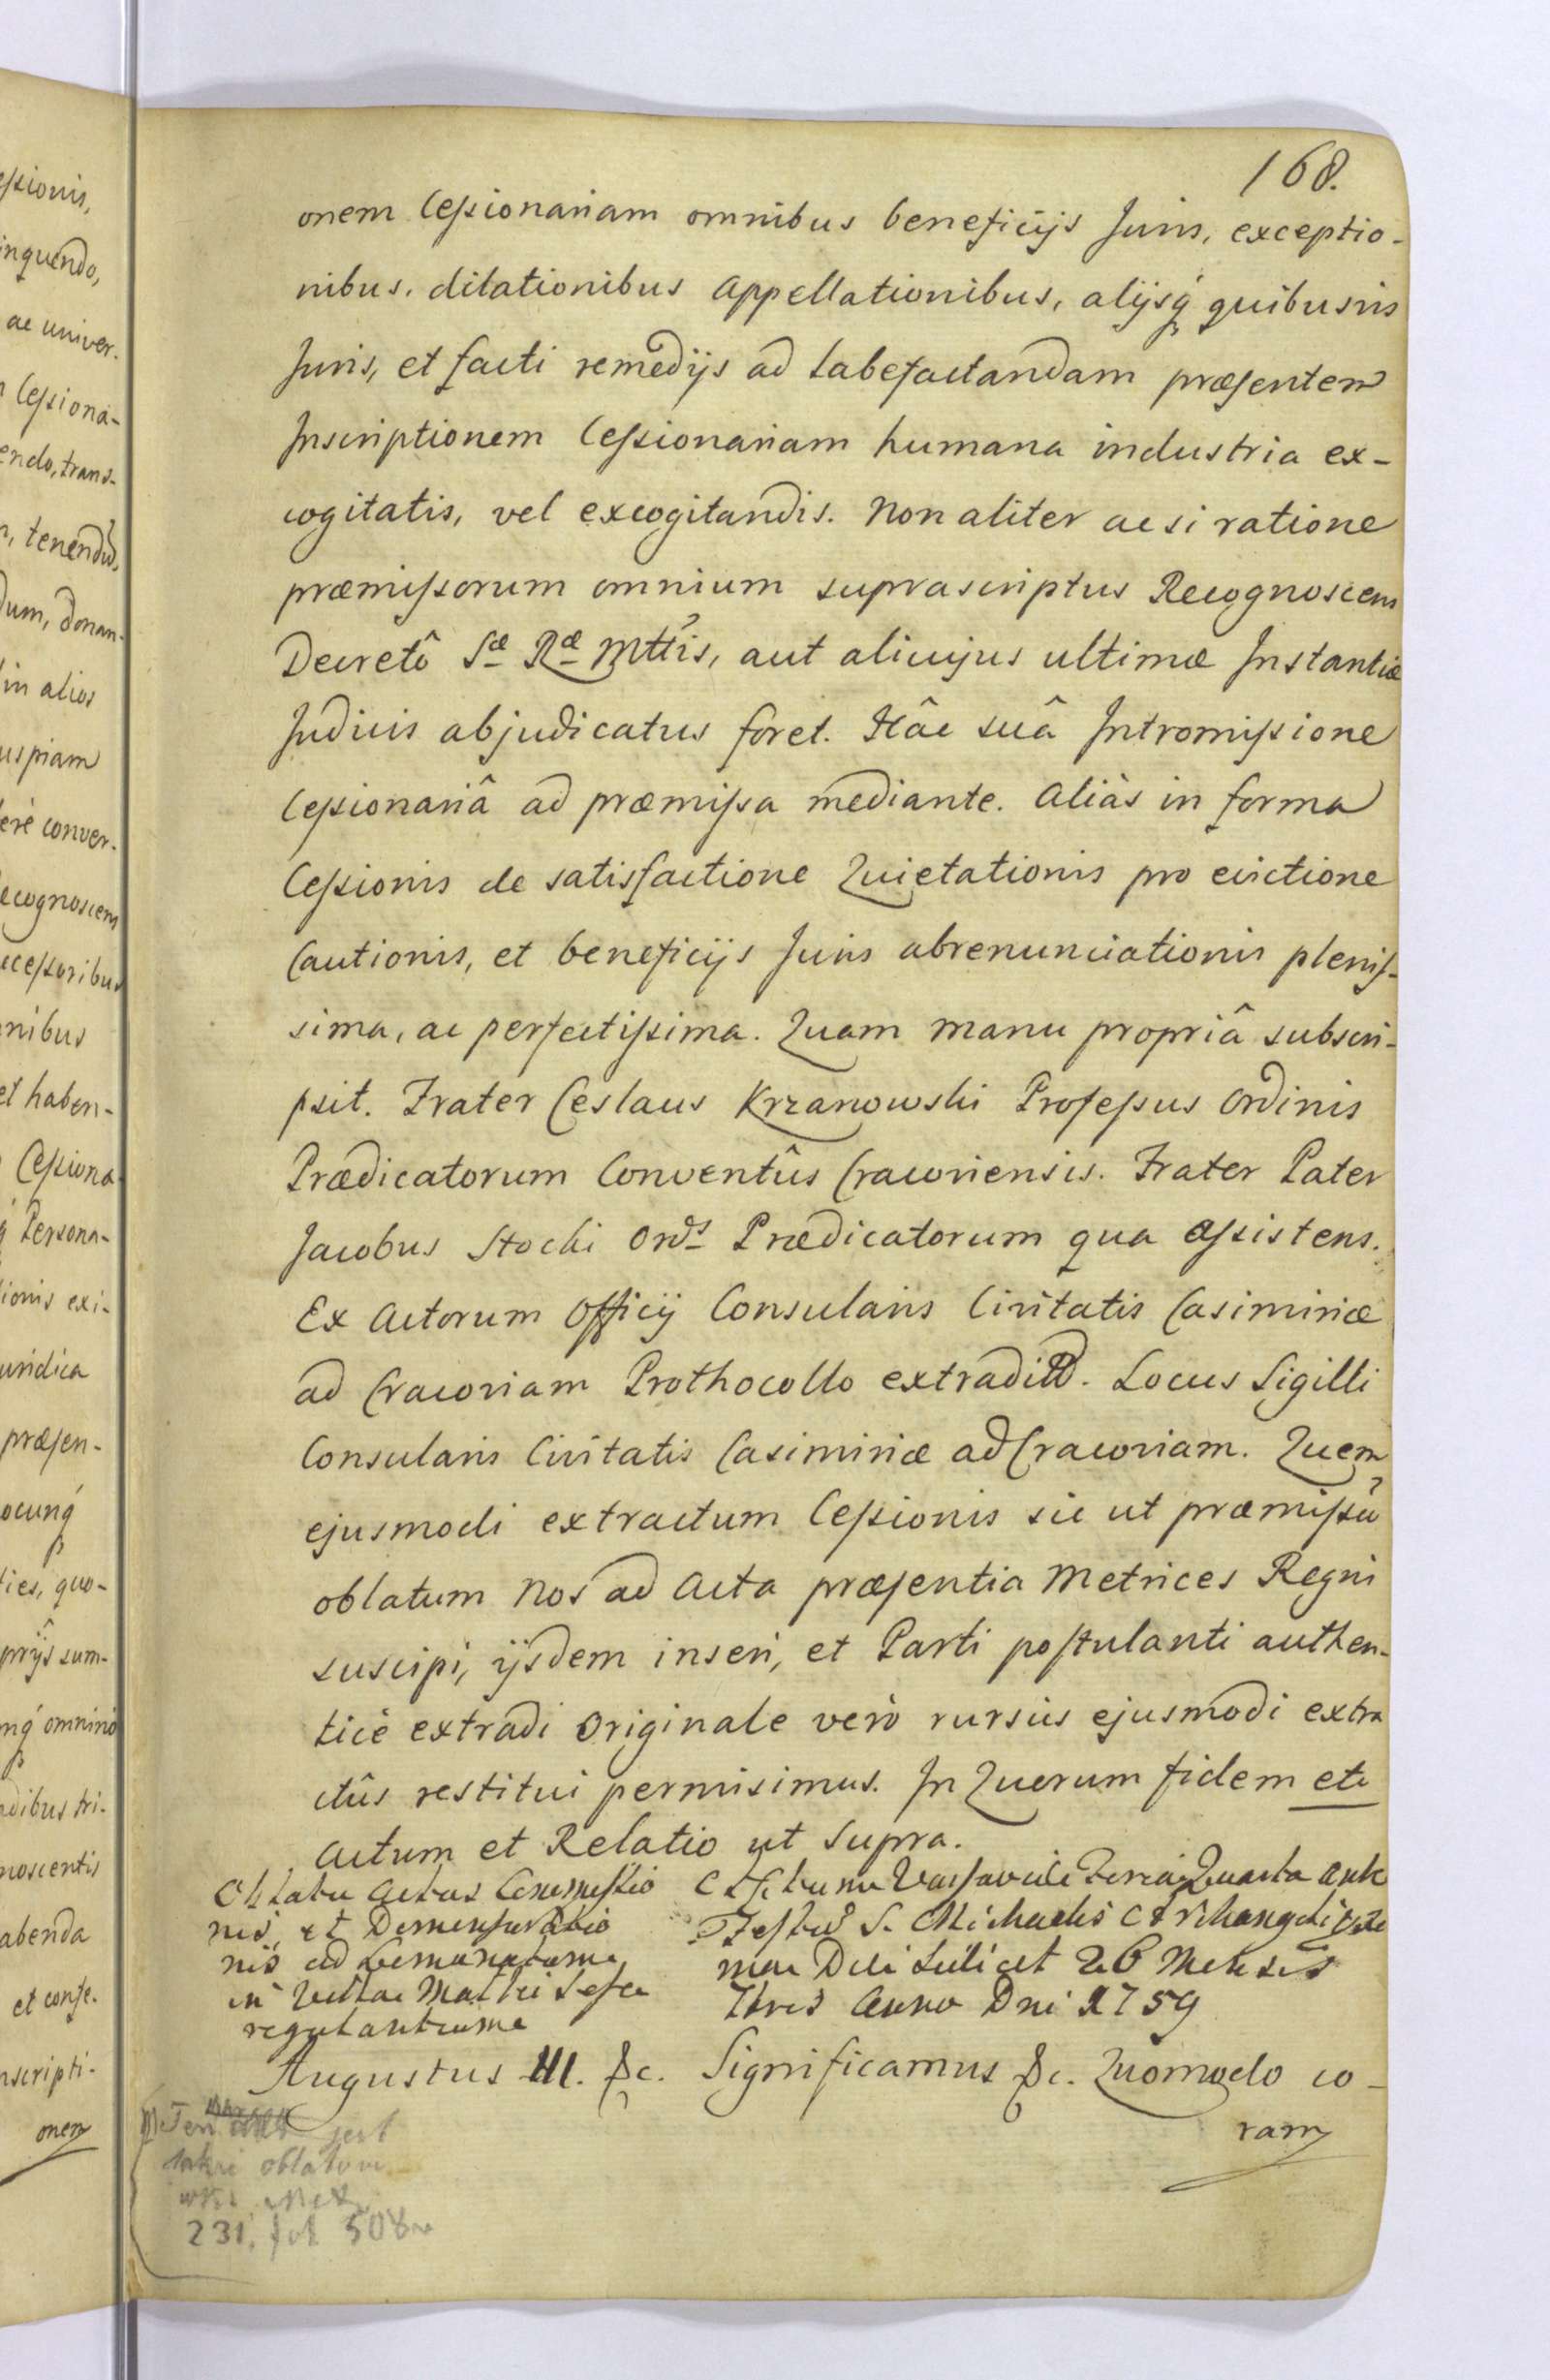 168.
onem Cessionariam omnibus beneficijs Juris, exceptio-
nibus, dilationibus appellationibus, alijsq́ quibusvis
Juris, et facti remedijs ad labefactandam præsentem
Inscriptionem Cessionariam humana industria ex-
cogitatis, vel excogitandis. Non aliter ac si ratione
præmissorum omnium suprascriptus Recognoscens
Decretô Sæ Ræ Mttis, aut alicujus ultimæ Instantiæ
Judicis abjudicatus foret. Hâc suâ Intromissione
Cessionariâ ad præmissa mediante. Aliàs in forma
Cessionis de satisfactione Quietationis pro evictione
Cautionis, et beneficijs Juris abrenunciationis plenis-
sima, ac perfectissima. Quam manu propriâ subscri-
psit. Frater Ceslaus Krzanowski Professus Ordinis
Prædicatorum Conventûs Cracoviensis. Frater Pater
Jacobus Stocki Ords Prædicatorum qua assistens.
Ex Actorum Officij Consularis Civitatis Casimiriæ
ad Cracoviam Prothocollo extradit. Locus Sigilli
Consularis Civitatis Casimiriæ ad Cracoviam. Quem
ejusmodi extractum Cessionis sic ut præmissũ
oblatum Nos ad Acta præsentia Metrices Regni
suscipi, ijsdem inseri, et Parti postulanti authen-
ticè extradi Originale verò rursùs ejusmodi extra
ctûs restitui permisimus. In Quorum fidem etc
Actum et Relatio ut supra.
Oblata Actus Commissio
nis, et Dimensuratio
nis ad
in Villa
Actum Varsaviæ Feria Quarta ante
Festum S. Michaelis Archangeli
Die scilicet 26 Mensis
7bris Anno Dni 1759
Augustus III. &c. Significamus &c. Quomodo co-
ram
Ten jest
oblatum
231. fol 508
essionis,
inquendo,
ac univer-
Cessiona-
endo, trans-
tenendũ,
dum, donan-
in alios
uspiam
erè conver-
ecognoscens
ccessoribus
nibus
et haben-
Cessiona
Persona-
ionis exi-
uridica
præsen-
ocunq́
ties, quo-
prijs sum-
nq́ omninò
dibus tri-
noscentis
abenda
et confe-
nscripti-
onem